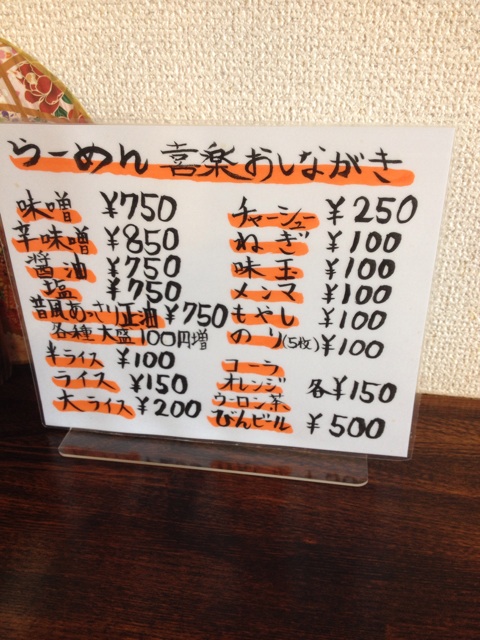 らーめん 喜楽おしながき
味噌 ¥750
辛味噌 ¥850
醤油 ¥750
塩 ¥750
昔風あっさり正油 ¥750
各種大盛100円増
半ライス ¥100
ライス ¥150
大ライス ¥200
チャーシュー ¥250
ねぎ ¥100
味玉 ¥100
メンマ ¥100
もやし ¥100
のり(5枚) ¥100
コーラ
オレンジ 各¥150
ウーロン茶
びんビール ¥500